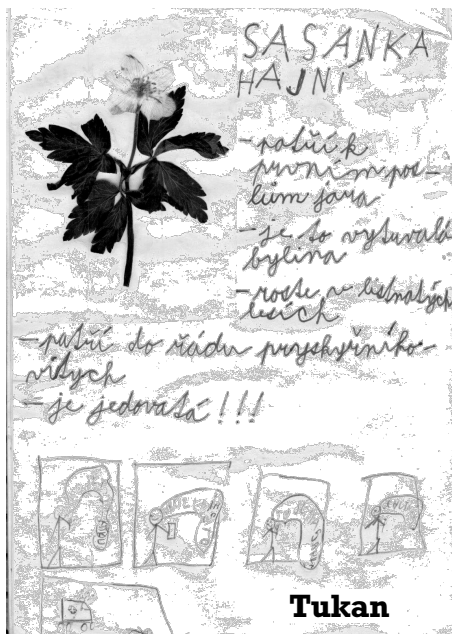 SASANKA
HAJNÍ
- patří k
prvním pos-
lům jara
- je to vytuvalá
bylina
- roste v listnatých
lesích
- patří do řádu pryskyřníko-
vitých
- je jedovatá!!!
Tukan